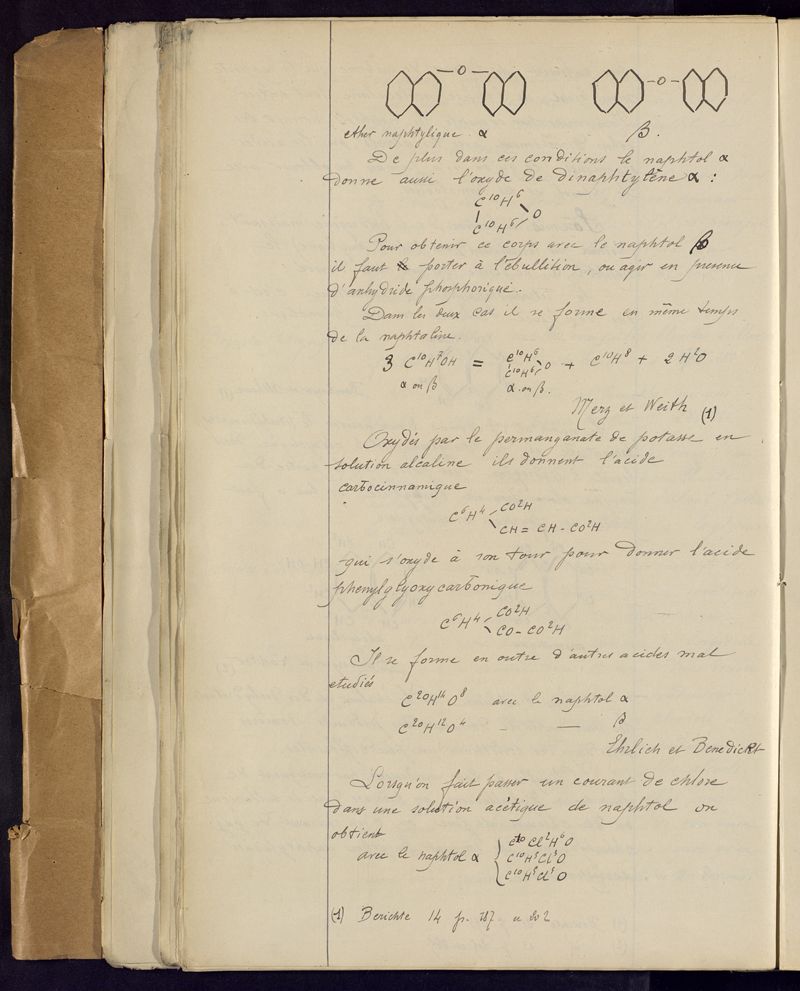 O O
ether naphtylique α β.
De plus dans ces conditions le naphtol α
donne aussi l'oxyde de dinaphtylène α :
C¹⁰H⁶
C¹⁰H⁶ O
Pour obtenir ce corps avec le naphtol β
il faut porter à l'ébullition, ou agir en presence
d'anhydride phosphorique.
Dans les deux cas il se forme en même temps
de la naphtaline.
3 C¹⁰H⁷OH = C¹⁰H⁶ C¹⁰H⁶ O + C¹⁰H⁸ + 2 H²O
α ou β α ou β.
Merz et Weith (1)
Oxydés par le permanganate de potasse en
solution alcaline ils donnent l'acide
carbocinnamique
C⁶H⁴ CO²H
CH = CH - CO²H
qui s'oxyde à son tour pour donner l'acide
phenylglyoxycarbonique
C⁶H⁴ CO²H
CO - CO²H
Il se forme en outre d'autres acides mal
etudiés
C²⁰H¹⁴O⁸ avec le naphtol α
C²⁰H¹²O⁴ - — β
Ehrlich et Benedickt
Lorsqu'on fait passer un courant de chlore
dans une solution acétique de naphtol on
obtient
C¹⁰Cl²H⁶O
avec le naphtol α { C¹⁰H⁵Cl³O
C¹⁰H⁵Cl⁵O
(1) Berichte 14 p. 187